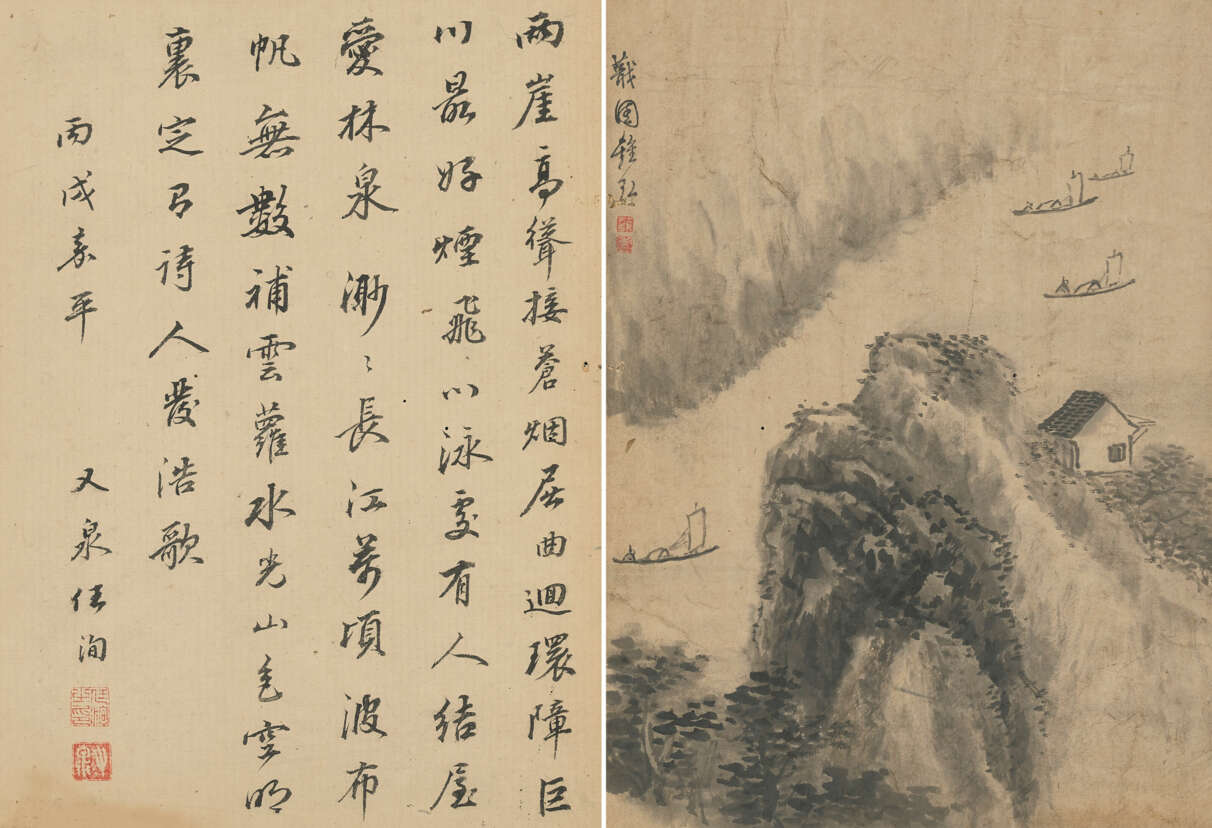 兩崖高聳接蒼烟屈曲迴環障巨
川最好煙飛川泳處有人結屋
愛林泉渺〻長江萬頃波布
帆無數補雲蘿水光山色空明
裏定有詩人發浩歌
丙戌嘉平
又泉任洵